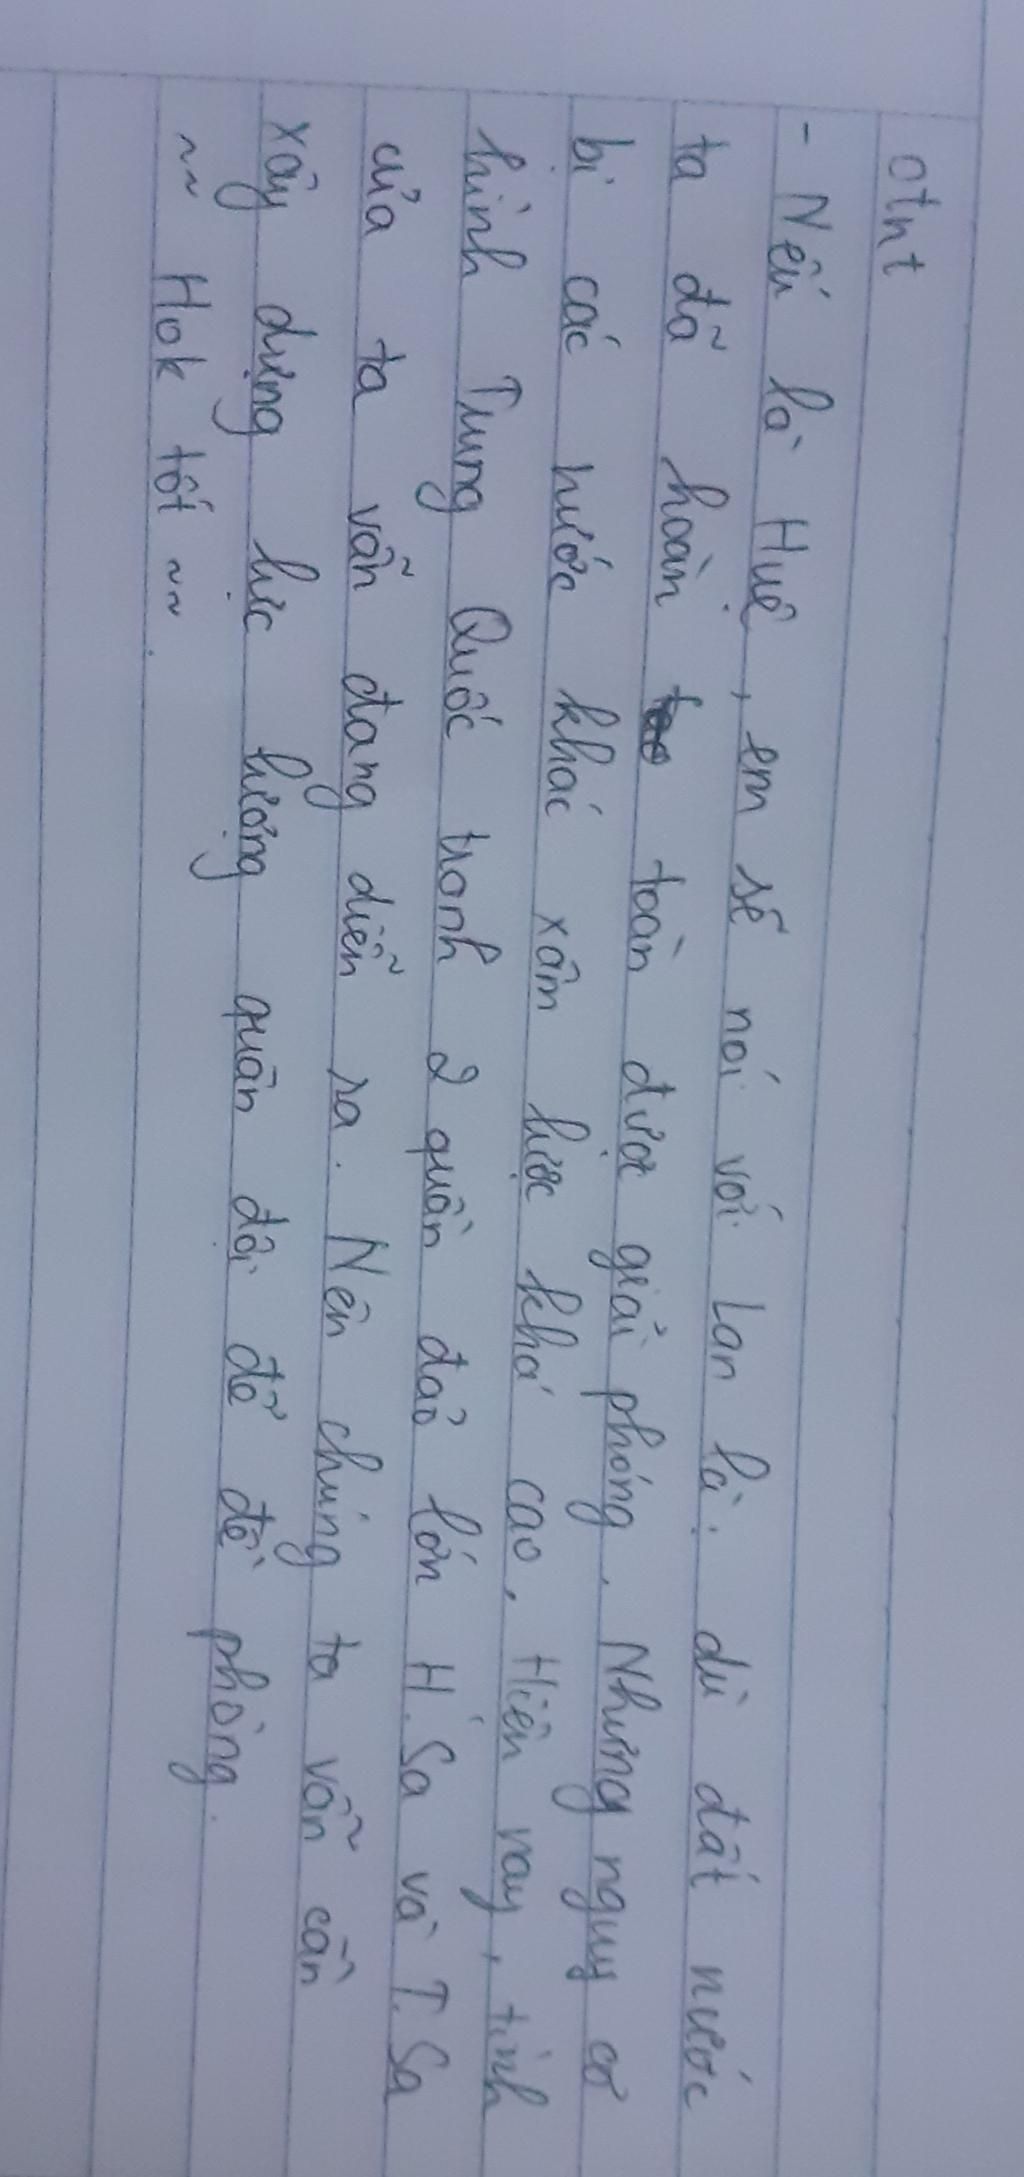 otnt
- Nếu là Huệ, em sẽ nói với Lan là: dù đất nước
ta đã hoàn toàn được giải phóng. Nhưng nguy cơ
bị các nước khác xâm lược khá cao. Hiện nay, tình
hình Trung Quốc tranh 2 quần đảo lớn H.Sa và T.Sa
của ta vẫn đang diễn ra. Nên chúng ta vẫn cần
xây dựng lực lượng quân đội để đề phòng.
~~ Hok tốt ~~